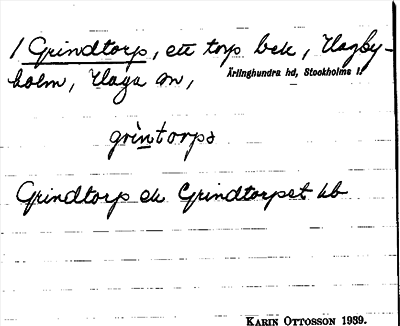 1 Grindtorp, ett torp bek, Hagby-
holm, Haga sn,
Ärlinghundra hd, Stockholms l.
grintorps
Grindtorp ek Grindtorpet kb
KARIN OTTOSSON 1939.